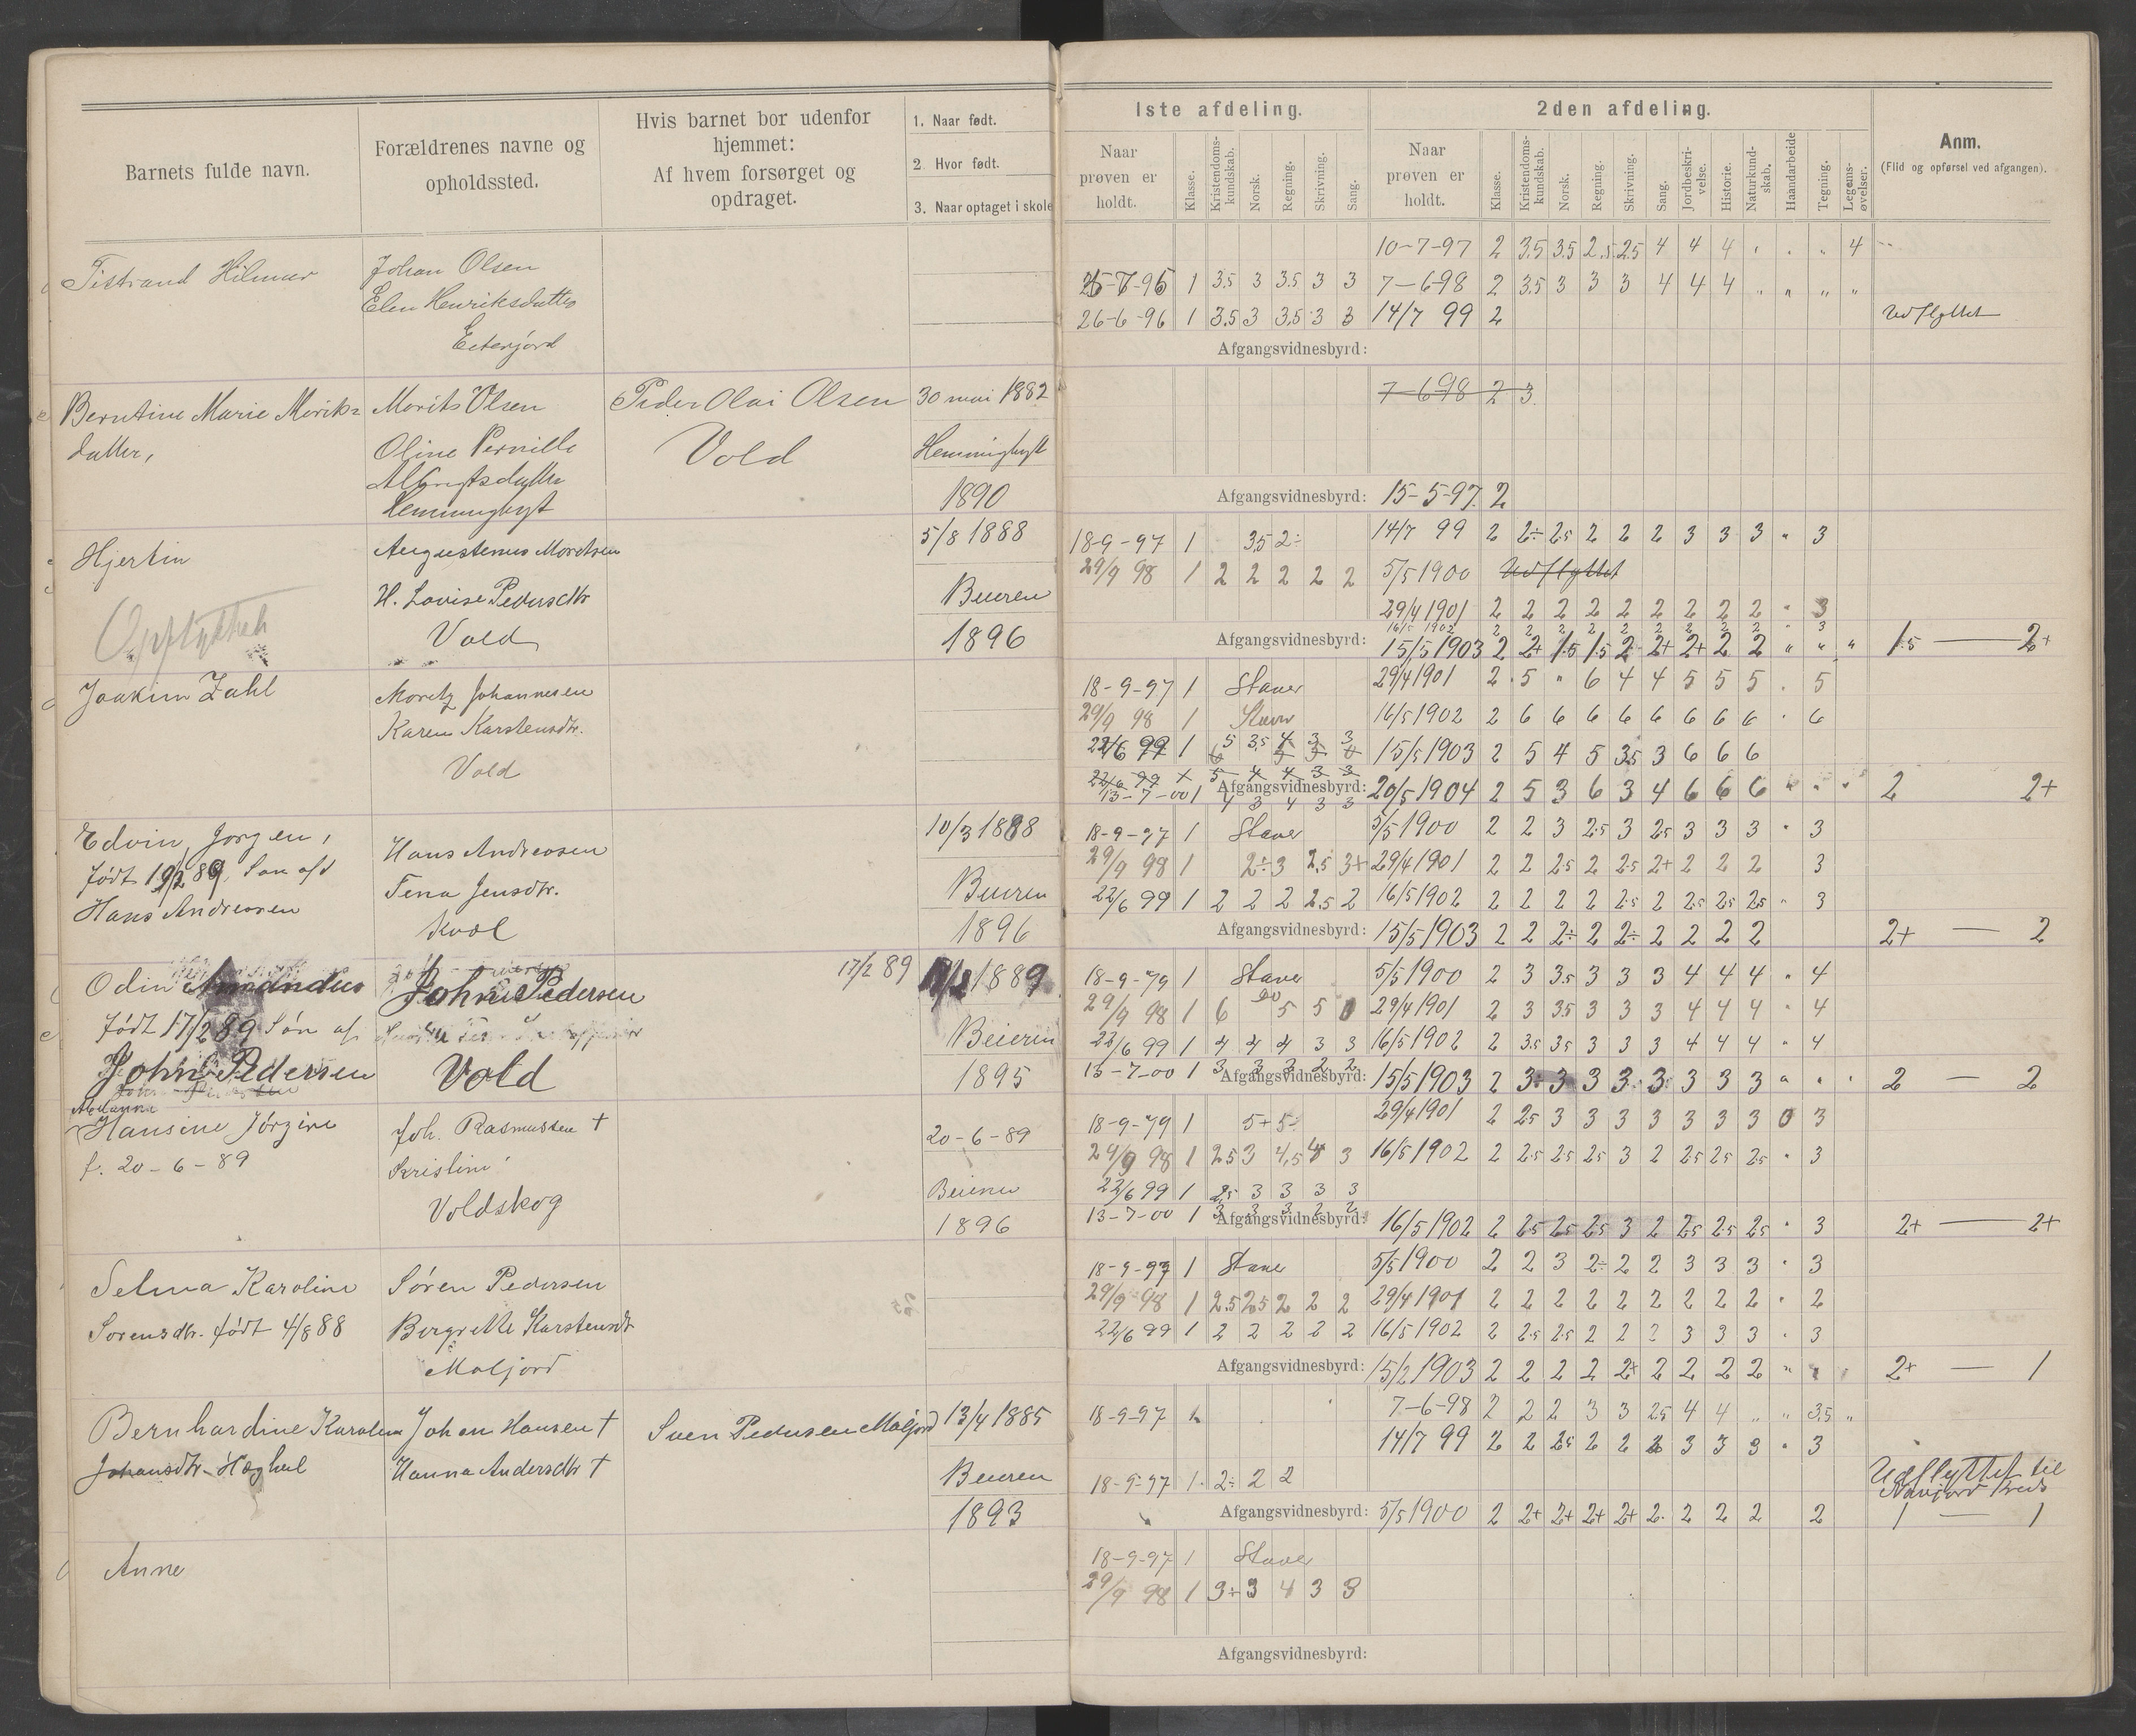 Barnets fulde navn.
Forældrenes navne og
opholdssted.
Hvis barnet bor udenfor
hjemmet:
Af hvem forsørget og
opdraget.
1. Naar født.
2. Hvor født.
3. Naar optaget i skole
1ste afdeling.
Naar
prøven er
holdt.
Klasse.
Kristendoms-
kundskab.
Norsk.
Regning.
Skrivning.
Sang.
2den afdeling.
Naar
prøven er
holdt.
Klasse.
Kristendoms-
kundskab.
Norsk.
Regning.
Skrivning.
Sang.
Jordbeskri-
velse.
Historie.
Naturkund-
skab.
Haandarbeide
Tegning.
Legems-
øvelser.
Anm.
(Flid og opførsel ved afgangen).
Tistrand Hilmar
Johan Olsen
Elen Henriksdatter
10-7-97 2 3.5 3.5 2.5 2.5 4 4 4 " " " 4
1 3.5 3 3.5 3 3 7-6-98 2 3.5 3 3 3 4 4 4 " " " "
26-6-96 1 3.5 3 3.5 3 3 14/7 99 2
Udflyttet
Afgangsvidnesbyrd:
Berntine Marie Moriks
datter,
Morits Olsen
Oline Pernille
Peder Olai Olsen
Vold
30 mai 1882
1890
7-6-98 2 3
Afgangsvidnesbyrd: 15-5-97. 2
Hjertin
Augustinus Moritsen
H. Lovise Pedersdtr
Vold
5/8 1888
Beieren
1896
18-9-97 1 3.5 2÷ 14/7 99 2 2÷ 2.5 2 2 2 3 3 3 " 3
29/9 98 1 2 2 2 2 2 5/5 1900 Udflyttet
29/4 1901 2 2 2 2 2 2 2 2 2 " 3
16/5 1902 2 2 2 2 2 2 2 2 2 " 3
Afgangsvidnesbyrd: 15/5 1903 2 2+ 1.5 1.5 2 2+ 2+ 2 2 " " " 1.5 — 2+
Joakim Zahl
Moritz Johannesen
Karen Karstensdtr.
Vold
18-9-97 1 Staver 29/4 1901 2 5 " 6 4 4 5 5 5 " 5
29/9 98 1 Staver 16/5 1902 2 6 6 6 6 6 6 6 6 " 6
22/6 99 1 5 3.5 4 3 3 15/5 1903 2 5 4 5 3.5 3 6 6 6
13-7-00 1 4 3 4 3 3
Afgangsvidnesbyrd: 20/5 1904 2 5 3 6 3 4 6 6 6 2 2+
Edvin, Jørgen,
født 19/2 89, Søn af
Hans Andreasen
Hans Andreasen
Tena Jensdtr.
Kvæl
10/3 1888
Beieren
1896
18-9-97 1 Staver 5/5 1900 2 2 3 2.5 3 2.5 3 3 3 " 3
29/9 98 1 2÷ 3 2.5 3+ 29/4 1901 2 2 2.5 2 2.5 2+ 2 2 2 3
22/6 99 1 2 2 2 2.5 2 16/5 1902 2 2 2 2 2.5 2 2.5 2.5 2.5 " 3
Afgangsvidnesbyrd: 15/5 1903 2 2 2÷ 2 2÷ 2 2 2 2 2+ — 2
Odin Amandus
født 17/2 89 Søn af
John Pedersen
John Pedersen
Vold
17/2 89
1889
Beieren
1895
18-9-79 1 Staver 5/5 1900 2 3 3.5 3 3 3 4 4 4 " 4
29/9 98 1 6 5 5 0 29/4 1901 2 3 3.5 3 3 3 4 4 4 " 4
22/6 99 1 4 4 4 3 3 16/5 1902 2 3.5 3.5 3 3 3 4 4 4 " 4
13-7-00 1 3 3 3 2 2
Afgangsvidnesbyrd: 15/5 1903 2 3 3 3 3 3 3 3 3 " " " 2 — 2
Hansine Jørgine
f. 20-6-89
Joh. Rasmussen †
Kristine
Voldskog
20-6-89
Beieren
1896
18-9-79 1 5+ 5÷ 29/4 1901 2 2.5 3 3 3 3 3 3 3 0 3
29/9 98 1 2.5 3 4.5 4 3 16/5 1902 2 2.5 2.5 2.5 3 2 2.5 2.5 2.5 " 3
22/6 99 1 2.5 3 3 3 3
13-7-00 1 3 3 3 2 2
Afgangsvidnesbyrd: 16/5 1902 2 2.5 2.5 2.5 3 2 2.5 2.5 2.5 " 3 2+ — 2+
Selma Karoline
Sorensdtr. født 4/8 88
Søren Pedersen
Bergrette Karstensdtr
Moljord
18-9-97 1 Staver 5/5 1900 2 2 3 2÷ 2 2 3 3 3 " 3
29/9 98 1 2.5 2.5 2 2 2 29/4 1901 2 2 2 2 2 2 2 2 2 " 2
22/6 99 1 2 2 2 2 2 16/5 1902 2 2.5 2.5 2 2 2 3 3 3 " 3
Afgangsvidnesbyrd: 15/2 1903 2 2 2 2 2+ 2 2 2 2 " 2+ — 1
Bernhardine Karoline
Johansdtr. Høghei
Johan Hansen †
Hanna Andersdtr †
Sven Pedersen Moljord
13/4 1885
Beieren
1893
18-9-97 7-6-98 2 2 2 3 3 2.5 4 4 " " 3.5 "
14/7 99 2 2 2.5 2 2 2 3 3 3 " 3
18-9-97 1 2÷ 2 2
Udflyttet til
Afgangsvidnesbyrd: 5/5 1900 2 2+ 2+ 2+ 2+ 2 2 2 2 2 1 — 1
Anne
18-9-97 1 Staver
29/9 98 1 3÷ 3 4 3 3
Afgangsvidnesbyrd: